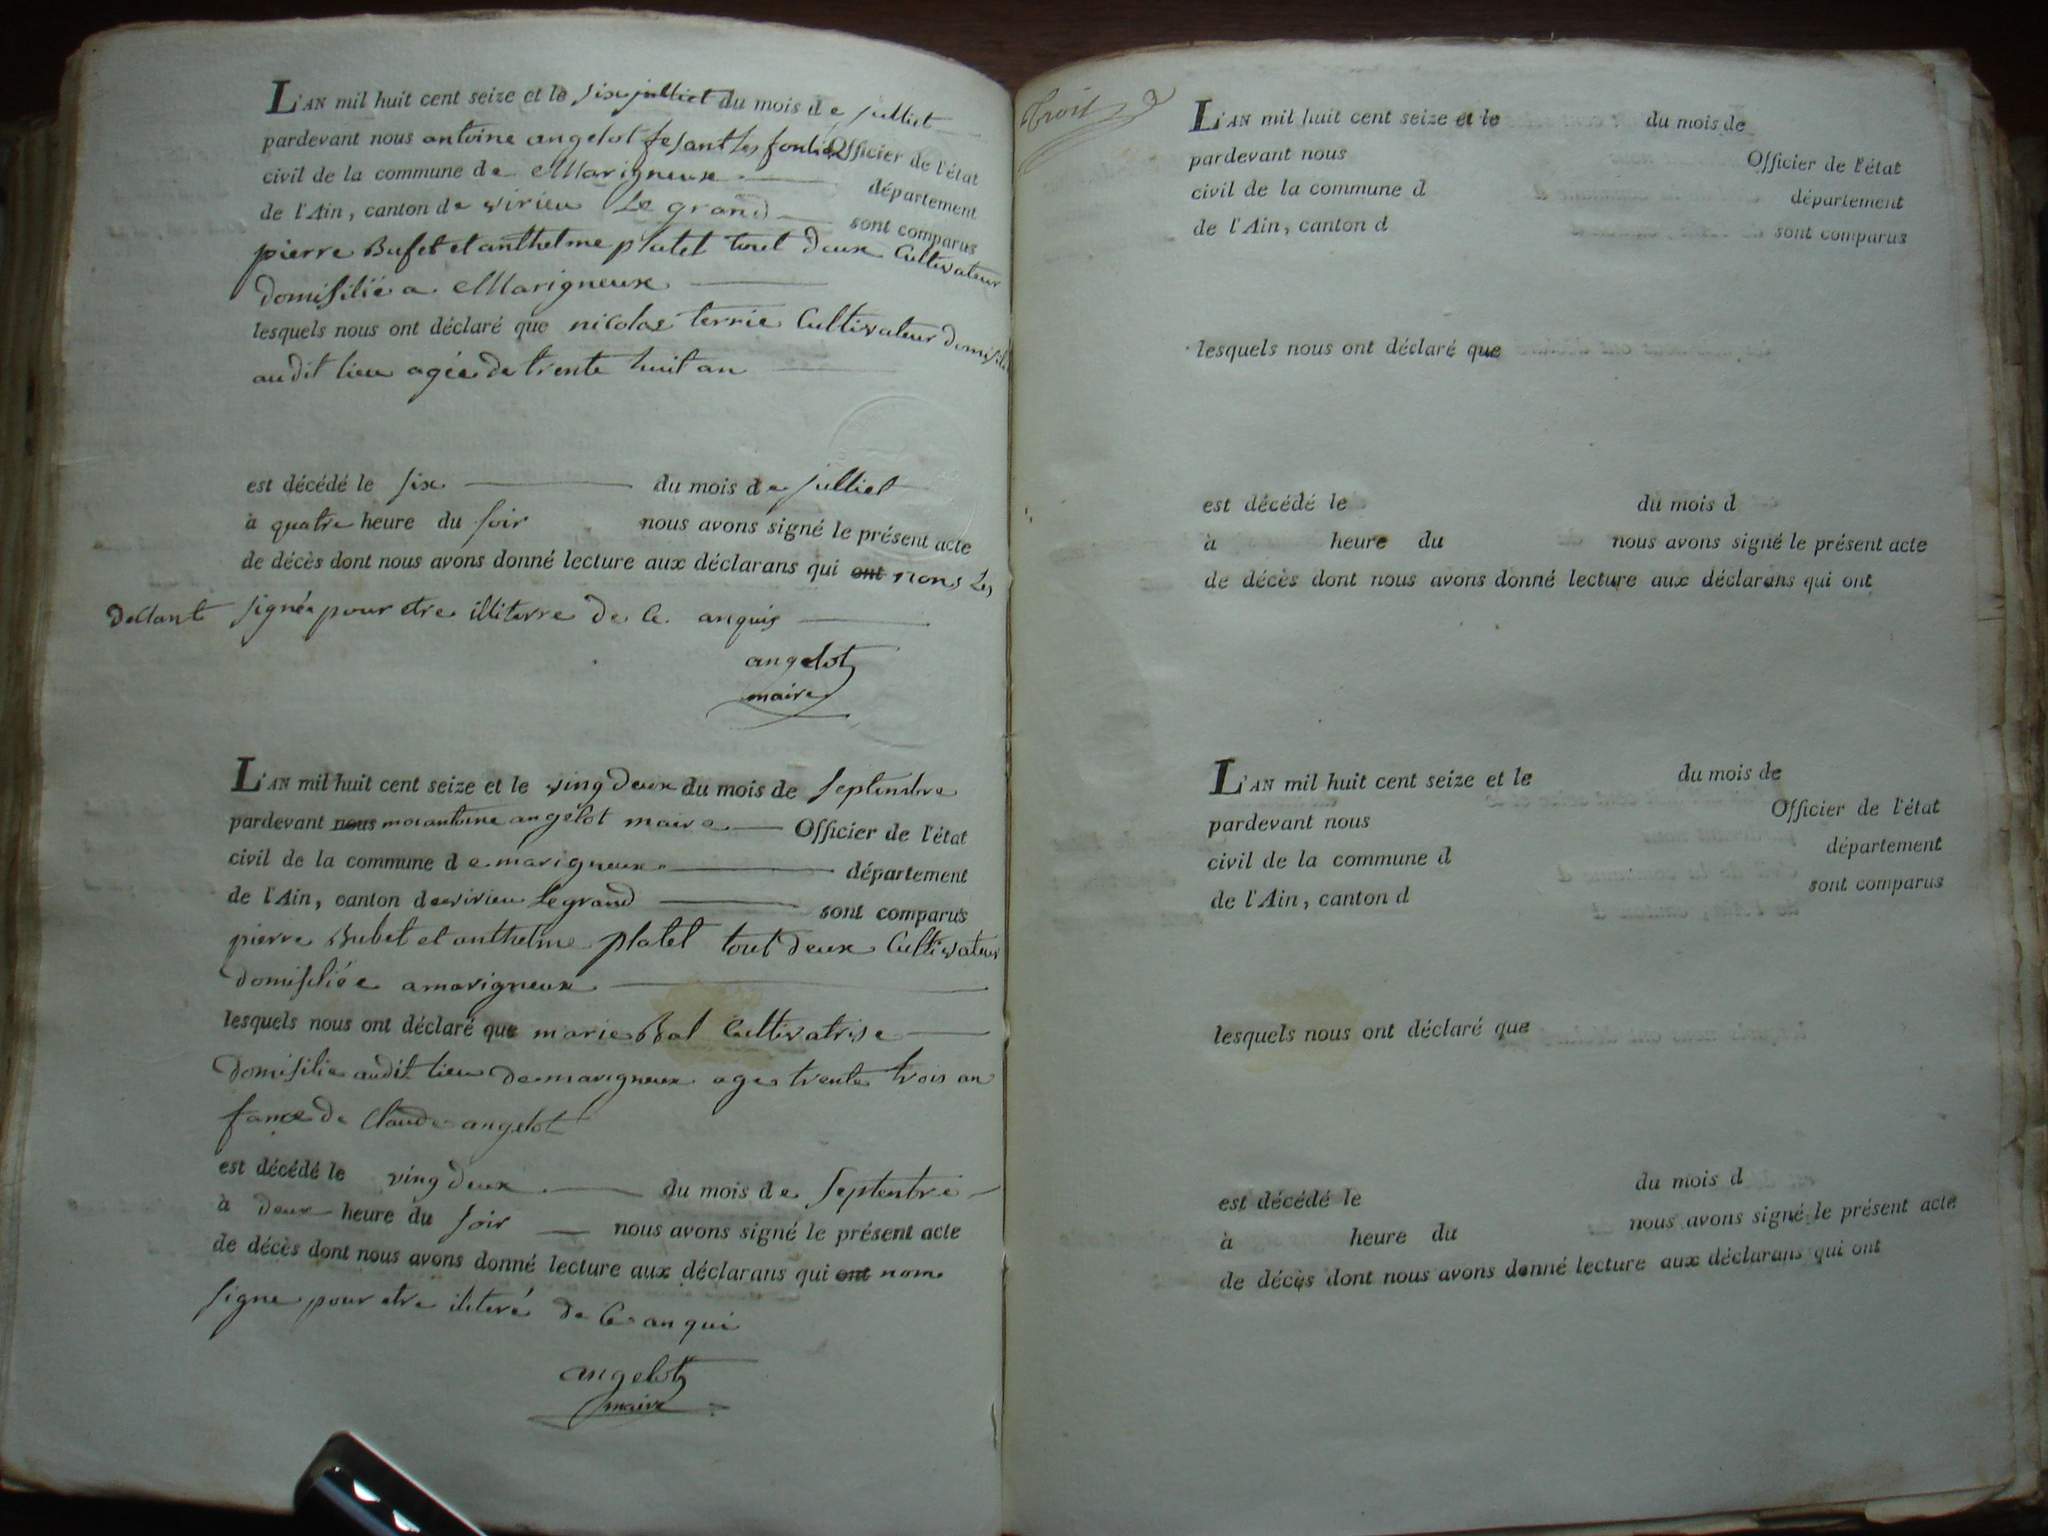 L'AN mil huit cent seize et le six julliet du mois de julliet
pardevant nous antoine angelot fesant les fontiex Officier de l'état
civil de la commune de Marigneux département
de l'Ain, canton de virieu Le grand sont comparus
pierre Bufet et anthelme platet tout deux Cultivateur
domisilié a Marigneux
lesquels nous ont déclaré que nicolas terrie Cultivateur domisilié
audit lieu agée de trente huit an
est décédé le six du mois de julliet
à quatre heure du soir nous avons signé le présent acte
de décès dont nous avons donné lecture aux déclarans qui ont nons Les
signée pour etre illiterre de Ce anquis
angelot
maire
L'AN mil huit cent seize et le ving deux du mois de septembre
pardevant nous moi antoine angelot maire Officier de l'état
civil de la commune de marigneux département
de l'Ain, canton de virieu Legrand sont comparus
pierre Bubet et anthelme platet tout deux Cultivateur
domisiliée a marigneux
lesquels nous ont déclaré que marie Bal Cultivatrise
domisilie audit lieu de marigneux age trente trois an
fame de Claude angelot
est décédé le ving deux du mois de septentre
à deux heure du soir nous avons signé le présent acte
de décès dont nous avons donné lecture aux déclarans qui ont nom
signe pour etre iliteré de Ce an qui
angelot
maire
L'AN mil huit cent seize et le du mois de
pardevant nous Officier de l'état
civil de la commune d département
de l'Ain, canton d sont comparus
lesquels nous ont déclaré que
est décédé le du mois d
à heure du nous avons signé le présent acte
de décès dont nous avons donné lecture aux déclarans qui ont
L'AN mil huit cent seize et le du mois de
pardevant nous Officier de l'état
civil de la commune d département
de l'Ain, canton d sont comparus
lesquels nous ont déclaré que
est décédé le du mois d
à heure du nous avons signé le présent acte
de décès dont nous avons donné lecture aux déclarans qui ont